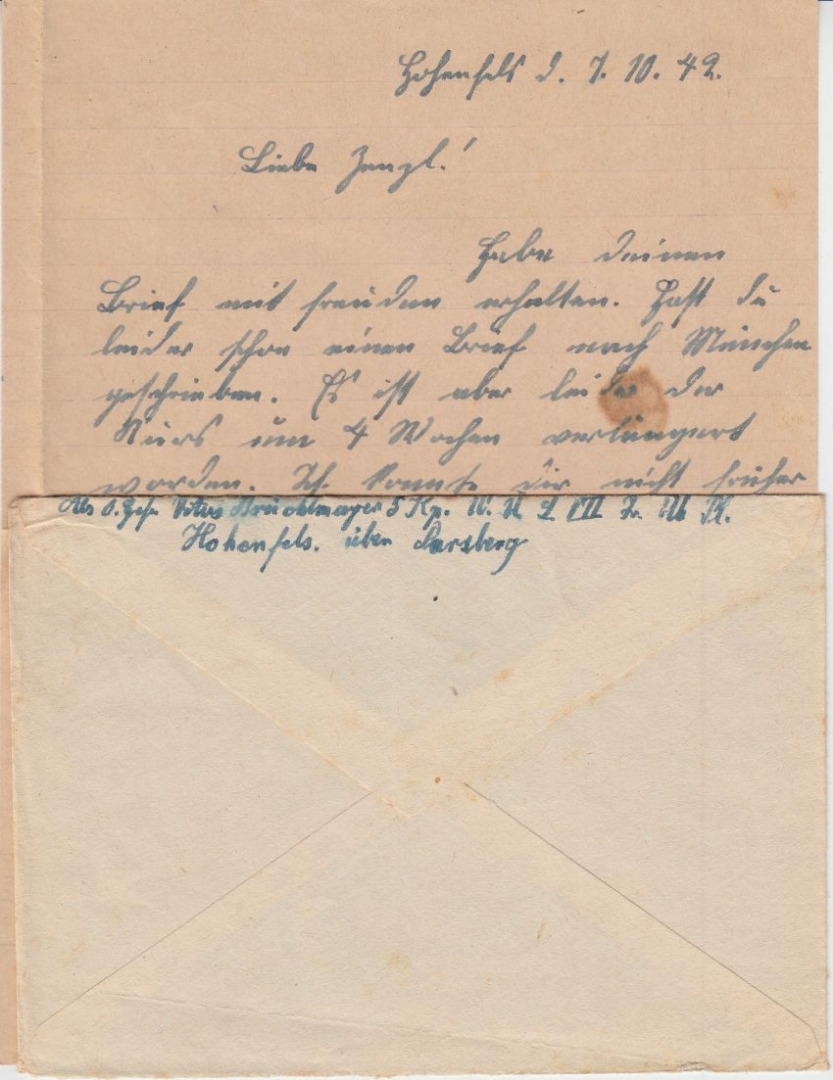 Hohenfels d. 7. 10. 42.
Liebe Zenzl!
Habe deinen
Brief mit freuden erhalten. Hast du
leider schon einen Brief nach München
geschrieben. Es ist aber leider der
Kurs um 4 Wochen verlängert
worden. Ich konnte dir nicht früher
Abs. O. Gefr. Vitus 5 Kp.
Hohenfels. über Parsberg